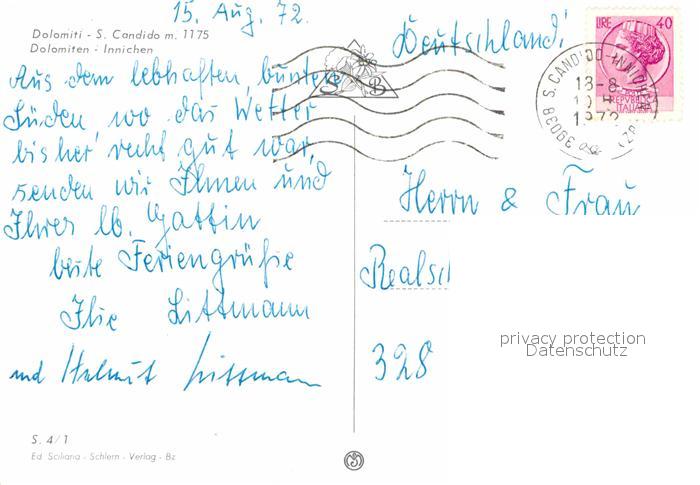 15. Aug. 72.
Dolomiti - S. Candido m. 1175
Dolomiten - Innichen
Aus dem lebhaften, bunten
Süden, wo das Wetter
bisher recht gut war,
senden wir Ihnen und
Ihrer lb. Gattin
beste Feriengrüße
Ilse Littmann
und Helmut Littmann
S. 4/1
Ed. Sciliana - Schlern - Verlag - Bz
Deutschland!
LIRE 40
REPVBBLICA
ITALIANA
39038 S. CANDIDO - INNICHEN (BZ)
18-8
1972
S B
Herrn & Frau
Realsc
328
privacy protection
Datenschutz